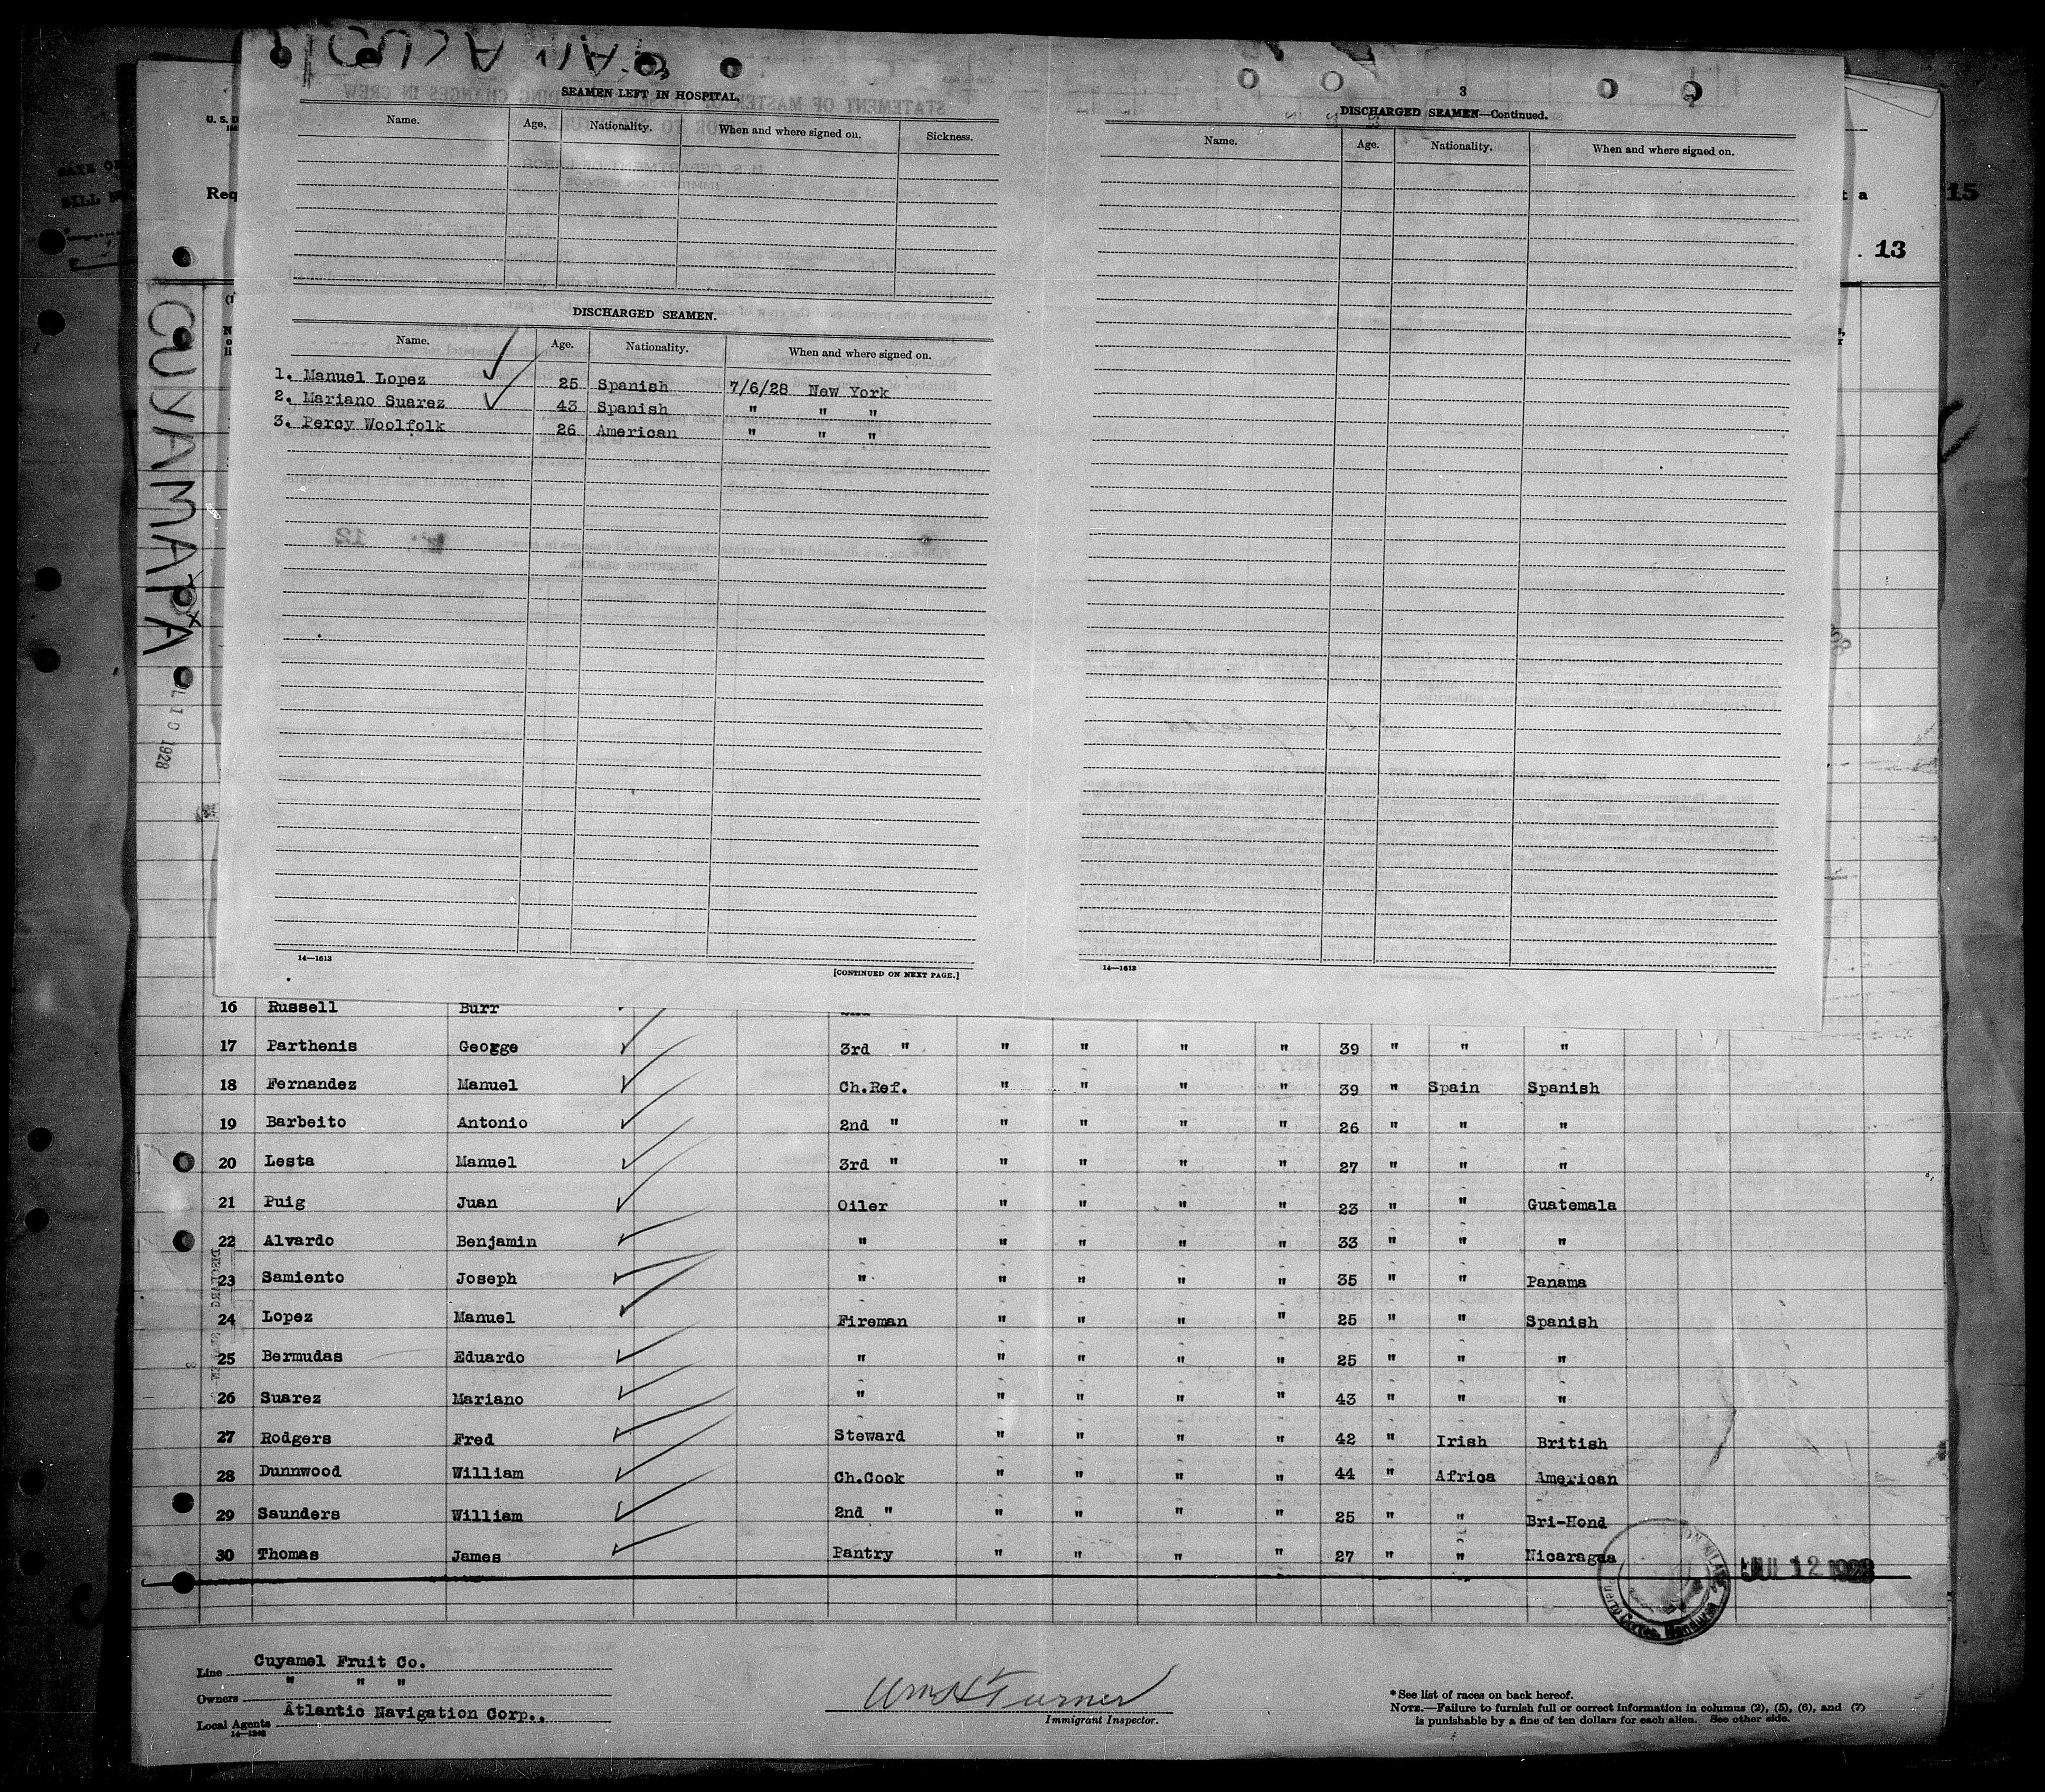 SEAMEN LEFT IN HOSPITAL.
Name. Age. Nationality. When and where signed on. Sickness.
DISCHARGED SEAMEN.
Name. Age. Nationality. When and where signed on.
1. Manuel Lopez 25 Spanish 7/6/28 New York
2. Mariano Suarez 43 Spanish " " "
3. Percy Woolfolk 26 American " " "
14—1613
[CONTINUED ON NEXT PAGE.]
3
DISCHARGED SEAMEN—Continued.
Name. Age. Nationality. When and where signed on.
14—1613
U. S. D
Req
t a
15
13
CUYAMAPA
L 10 1928
16 Russell Burr
17 Parthenis George 3rd " " " " " 39 " " "
18 Fernandez Manuel Ch.Ref. " " " " 39 " Spain Spanish
19 Barbeito Antonio 2nd " " " " " 26 " " "
20 Lesta Manuel 3rd " " " " " 27 " " "
21 Puig Juan Oiler " " " " 23 " " Guatemala
22 Alvardo Benjamin " " " " " 33 " " "
23 Samiento Joseph " " " " " 35 " " Panama
24 Lopez Manuel Fireman " " " " 25 " " Spanish
25 Bermudas Eduardo " " " " " 25 " " "
26 Suarez Mariano " " " " " 43 " " "
27 Rodgers Fred Steward " " " " 42 " Irish British
28 Dunnwood William Ch.Cook " " " " 44 " Africa American
29 Saunders William 2nd " " " " " 25 " " Bri-Hond
30 Thomas James Pantry " " " " 27 " " Nicaragua
Puerto Cortes, Honduras
JUL 12 1928
Line Cuyamel Fruit Co.
Owners " " "
Local Agents Atlantic Navigation Corp..
14—1240
Wm H Turner
Immigrant Inspector.
* See list of races on back hereof.
NOTE.—Failure to furnish full or correct information in columns (2), (5), (6), and (7)
is punishable by a fine of ten dollars for each alien. See other side.